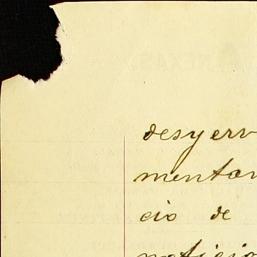 desyerv
mentar
cio de
noticio